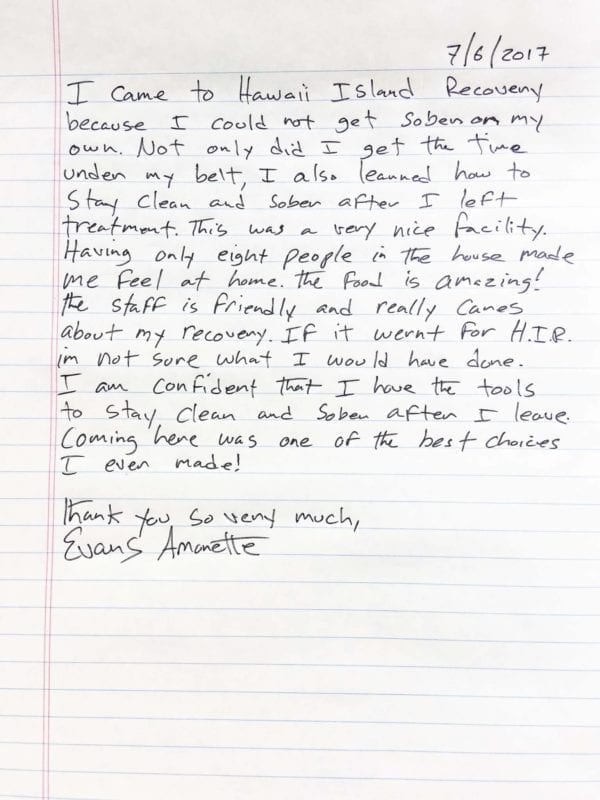 7/6/2017
I came to Hawaii Island Recovery
because I could not get Sober on my
own. Not only did I get the time
under my belt, I also learned how to
Stay Clean and Sober after I left
treatment. This was a very nice facility.
Having only eight people in the house made
me feel at home. The food is amazing!
the staff is friendly and really Cares
about my recovery. If it wernt for H.I.R.
im not sure what I would have done.
I am confident that I have the tools
to stay Clean and Sober after I leave.
Coming here was one of the best choices
I ever made!
Thank you so very much,
Evans Amonette